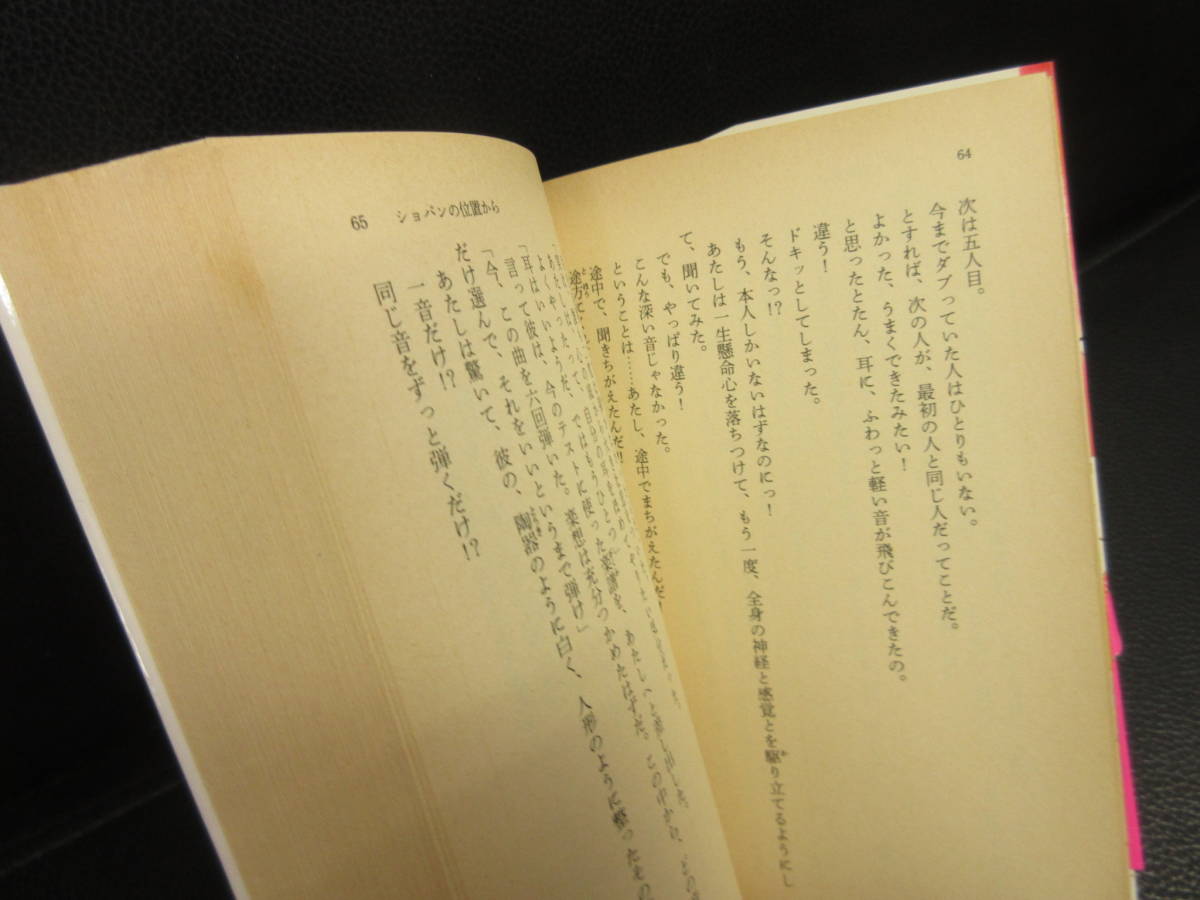 64
次は五人目。
今までダブっていた人はひとりもいない。
とすれば、次の人が、最初の人と同じ人だってことだ。
よかった、うまくできたみたい！
と思ったとたん、耳に、ふわっと軽い音が飛びこんできたの。
違う！
ドキッとしてしまった。
そんなっ!?
もう、本人しかいないはずなのにっ！
あたしは一生懸命心を落ちつけて、もう一度、全身の神経と感覚とを駆り立てるようにし
て、聞いてみた。
でも、やっぱり違う！
こんな深い音じゃなかった。
ということは……あたし、途中でまちがえたんだ！
途中で、聞きちがえたんだ!!
65 ショパンの位置から
「耳はいいようだ。
言って彼は、今のテストに使った楽譜を、あたしへと差し出した。
「今、この曲を六回弾いた。楽想は充分つかめたはずだ。この中から、
だけ選んで、それをいいというまで弾け」
あたしは驚いて、彼の、陶器のように白く、人形のように整った
一音だけ!?
同じ音をずっと弾くだけ!?